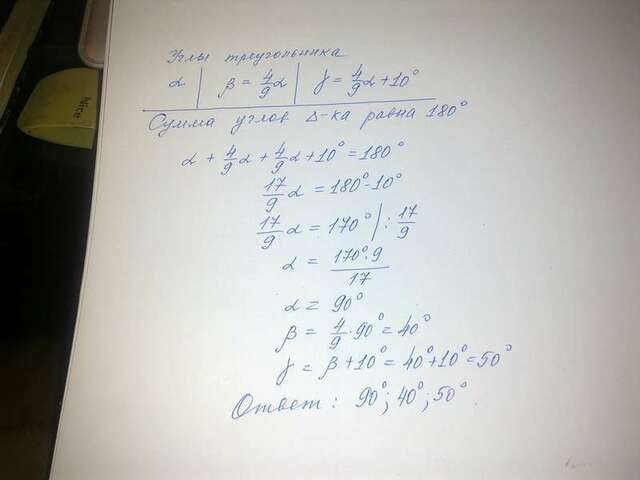 Углы треугольника
α | β = 4/9 α | γ = 4/9 α + 10°
Сумма углов Δ-ка равна 180°
α + 4/9 α + 4/9 α + 10° = 180°
17/9 α = 180° - 10°
17/9 α = 170° | : 17/9
α = 170°·9/17
α = 90°
β = 4/9 · 90° = 40°
γ = β + 10° = 40° + 10° = 50°
Ответ: 90°; 40°; 50°
Nice